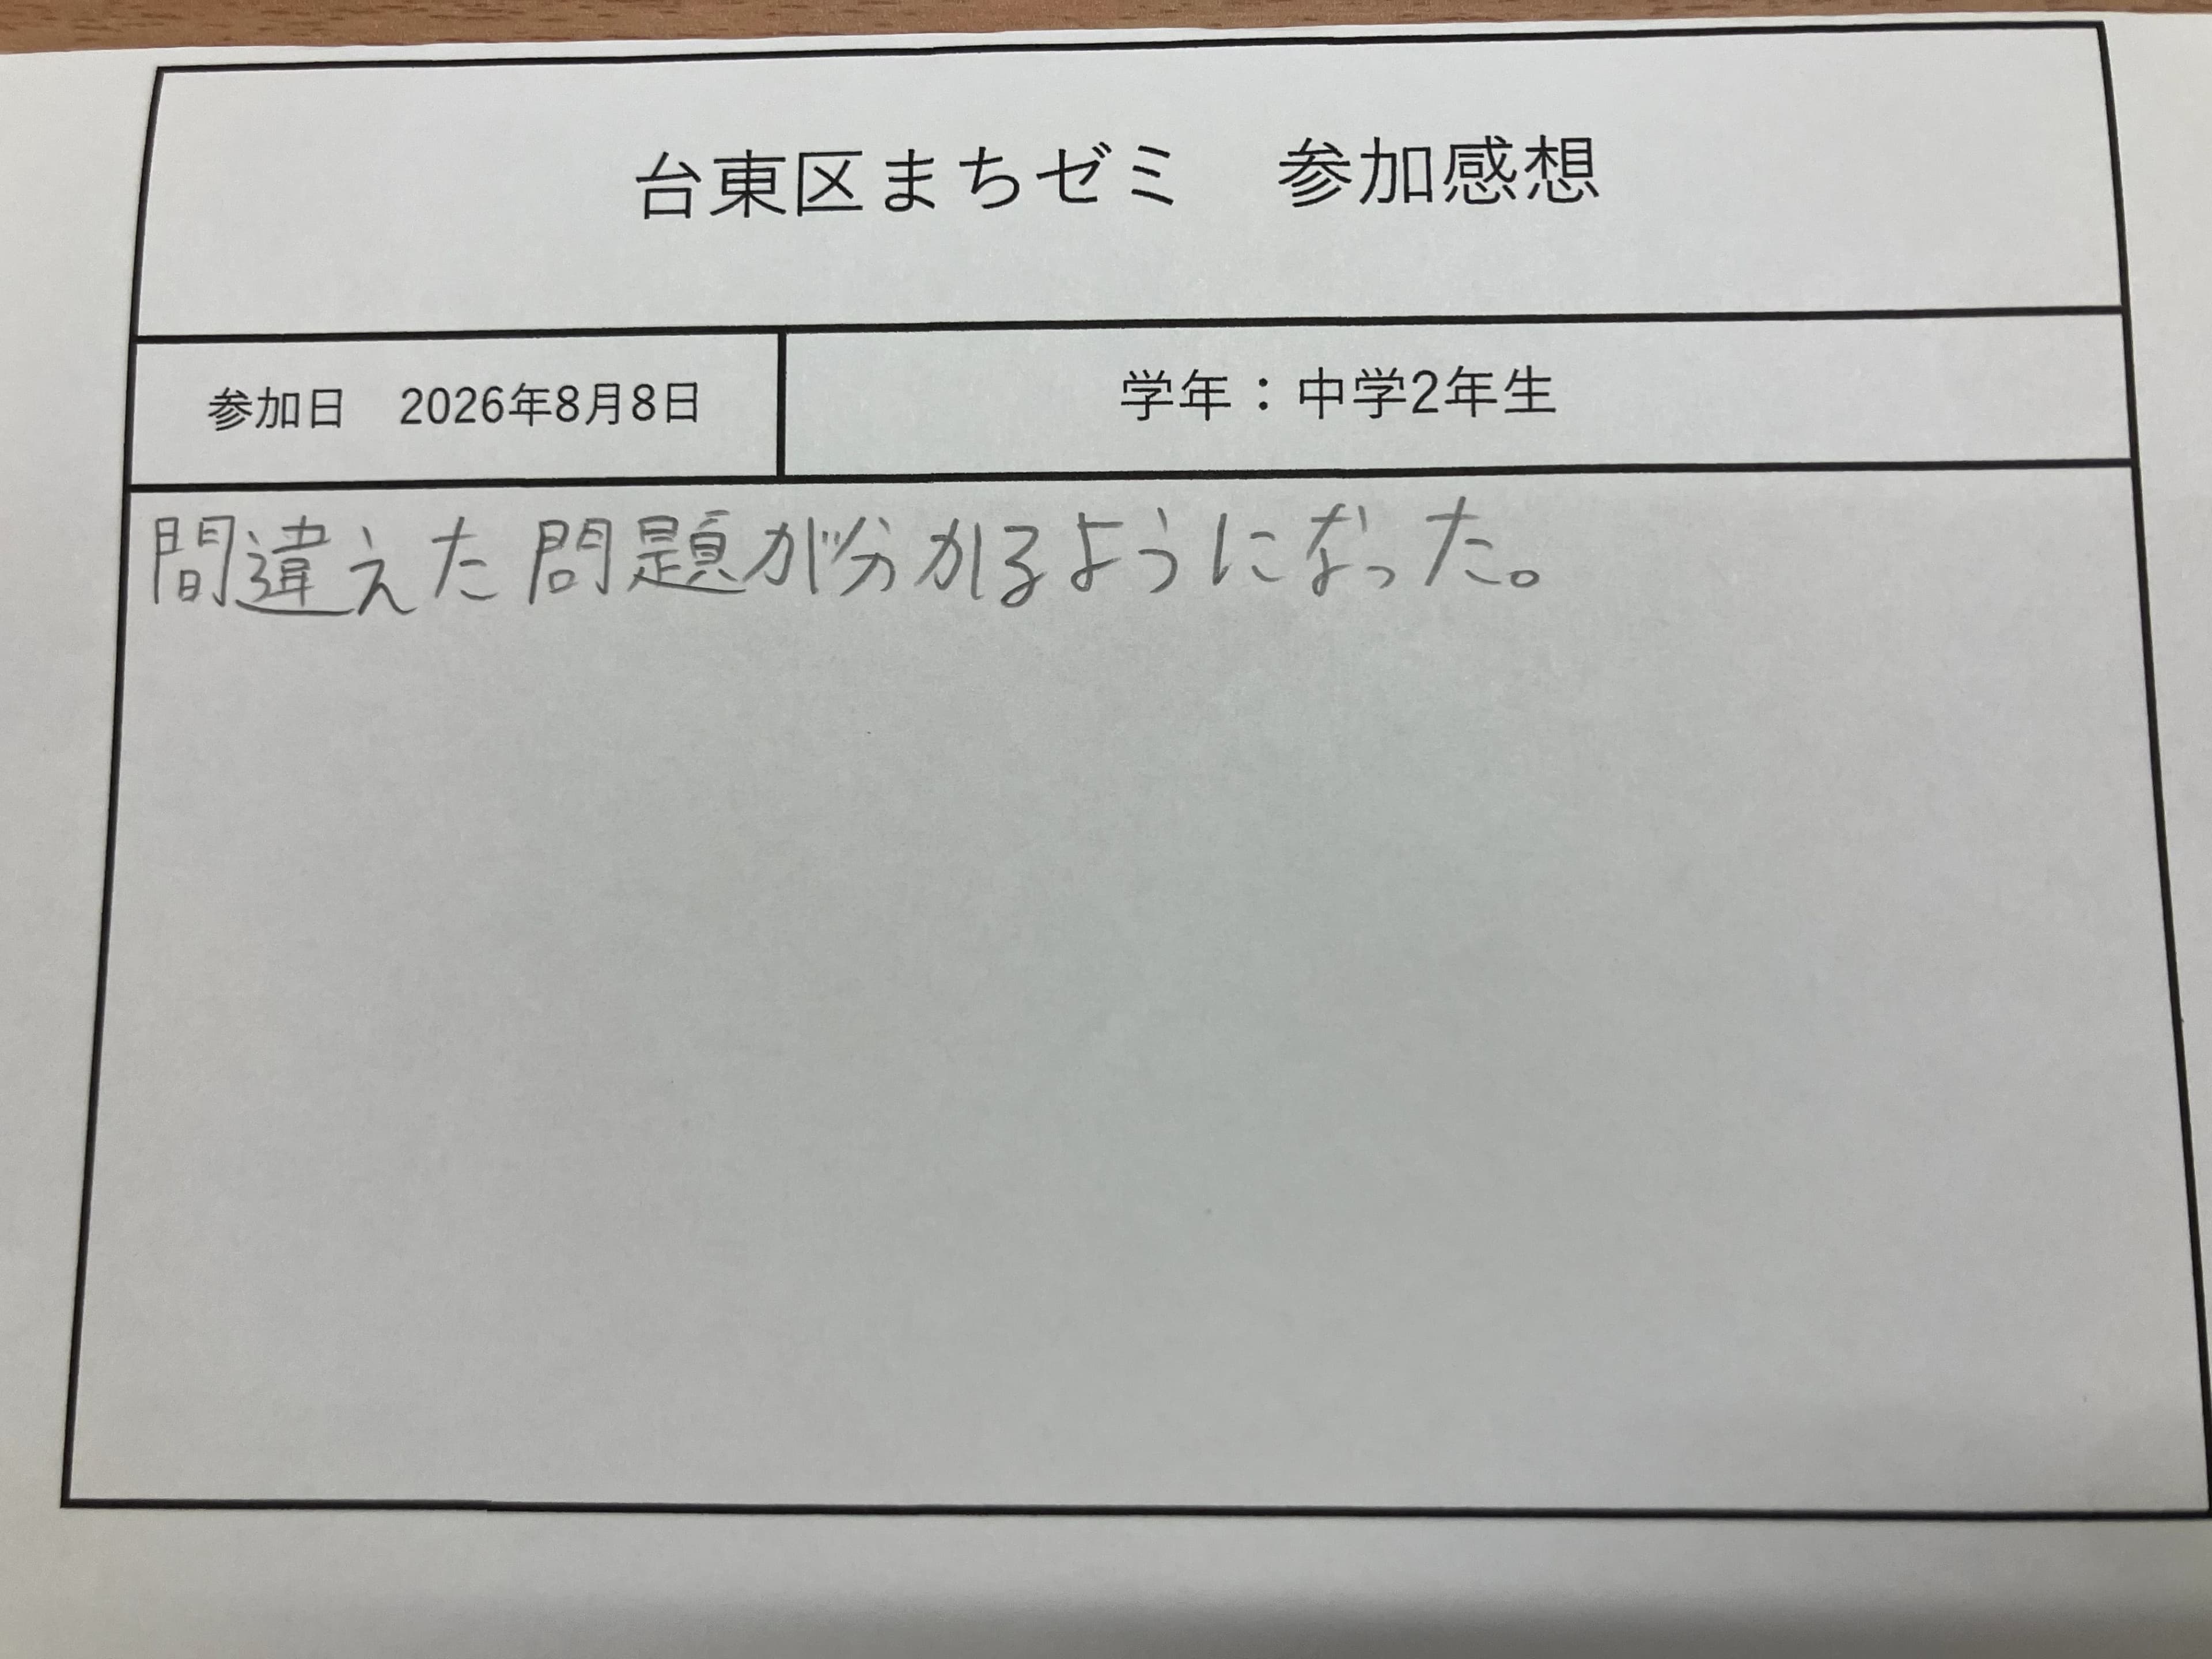 台東区まちゼミ　参加感想
参加日　2026年8月8日
学年：中学2年生
間違えた問題が分かるようになった。